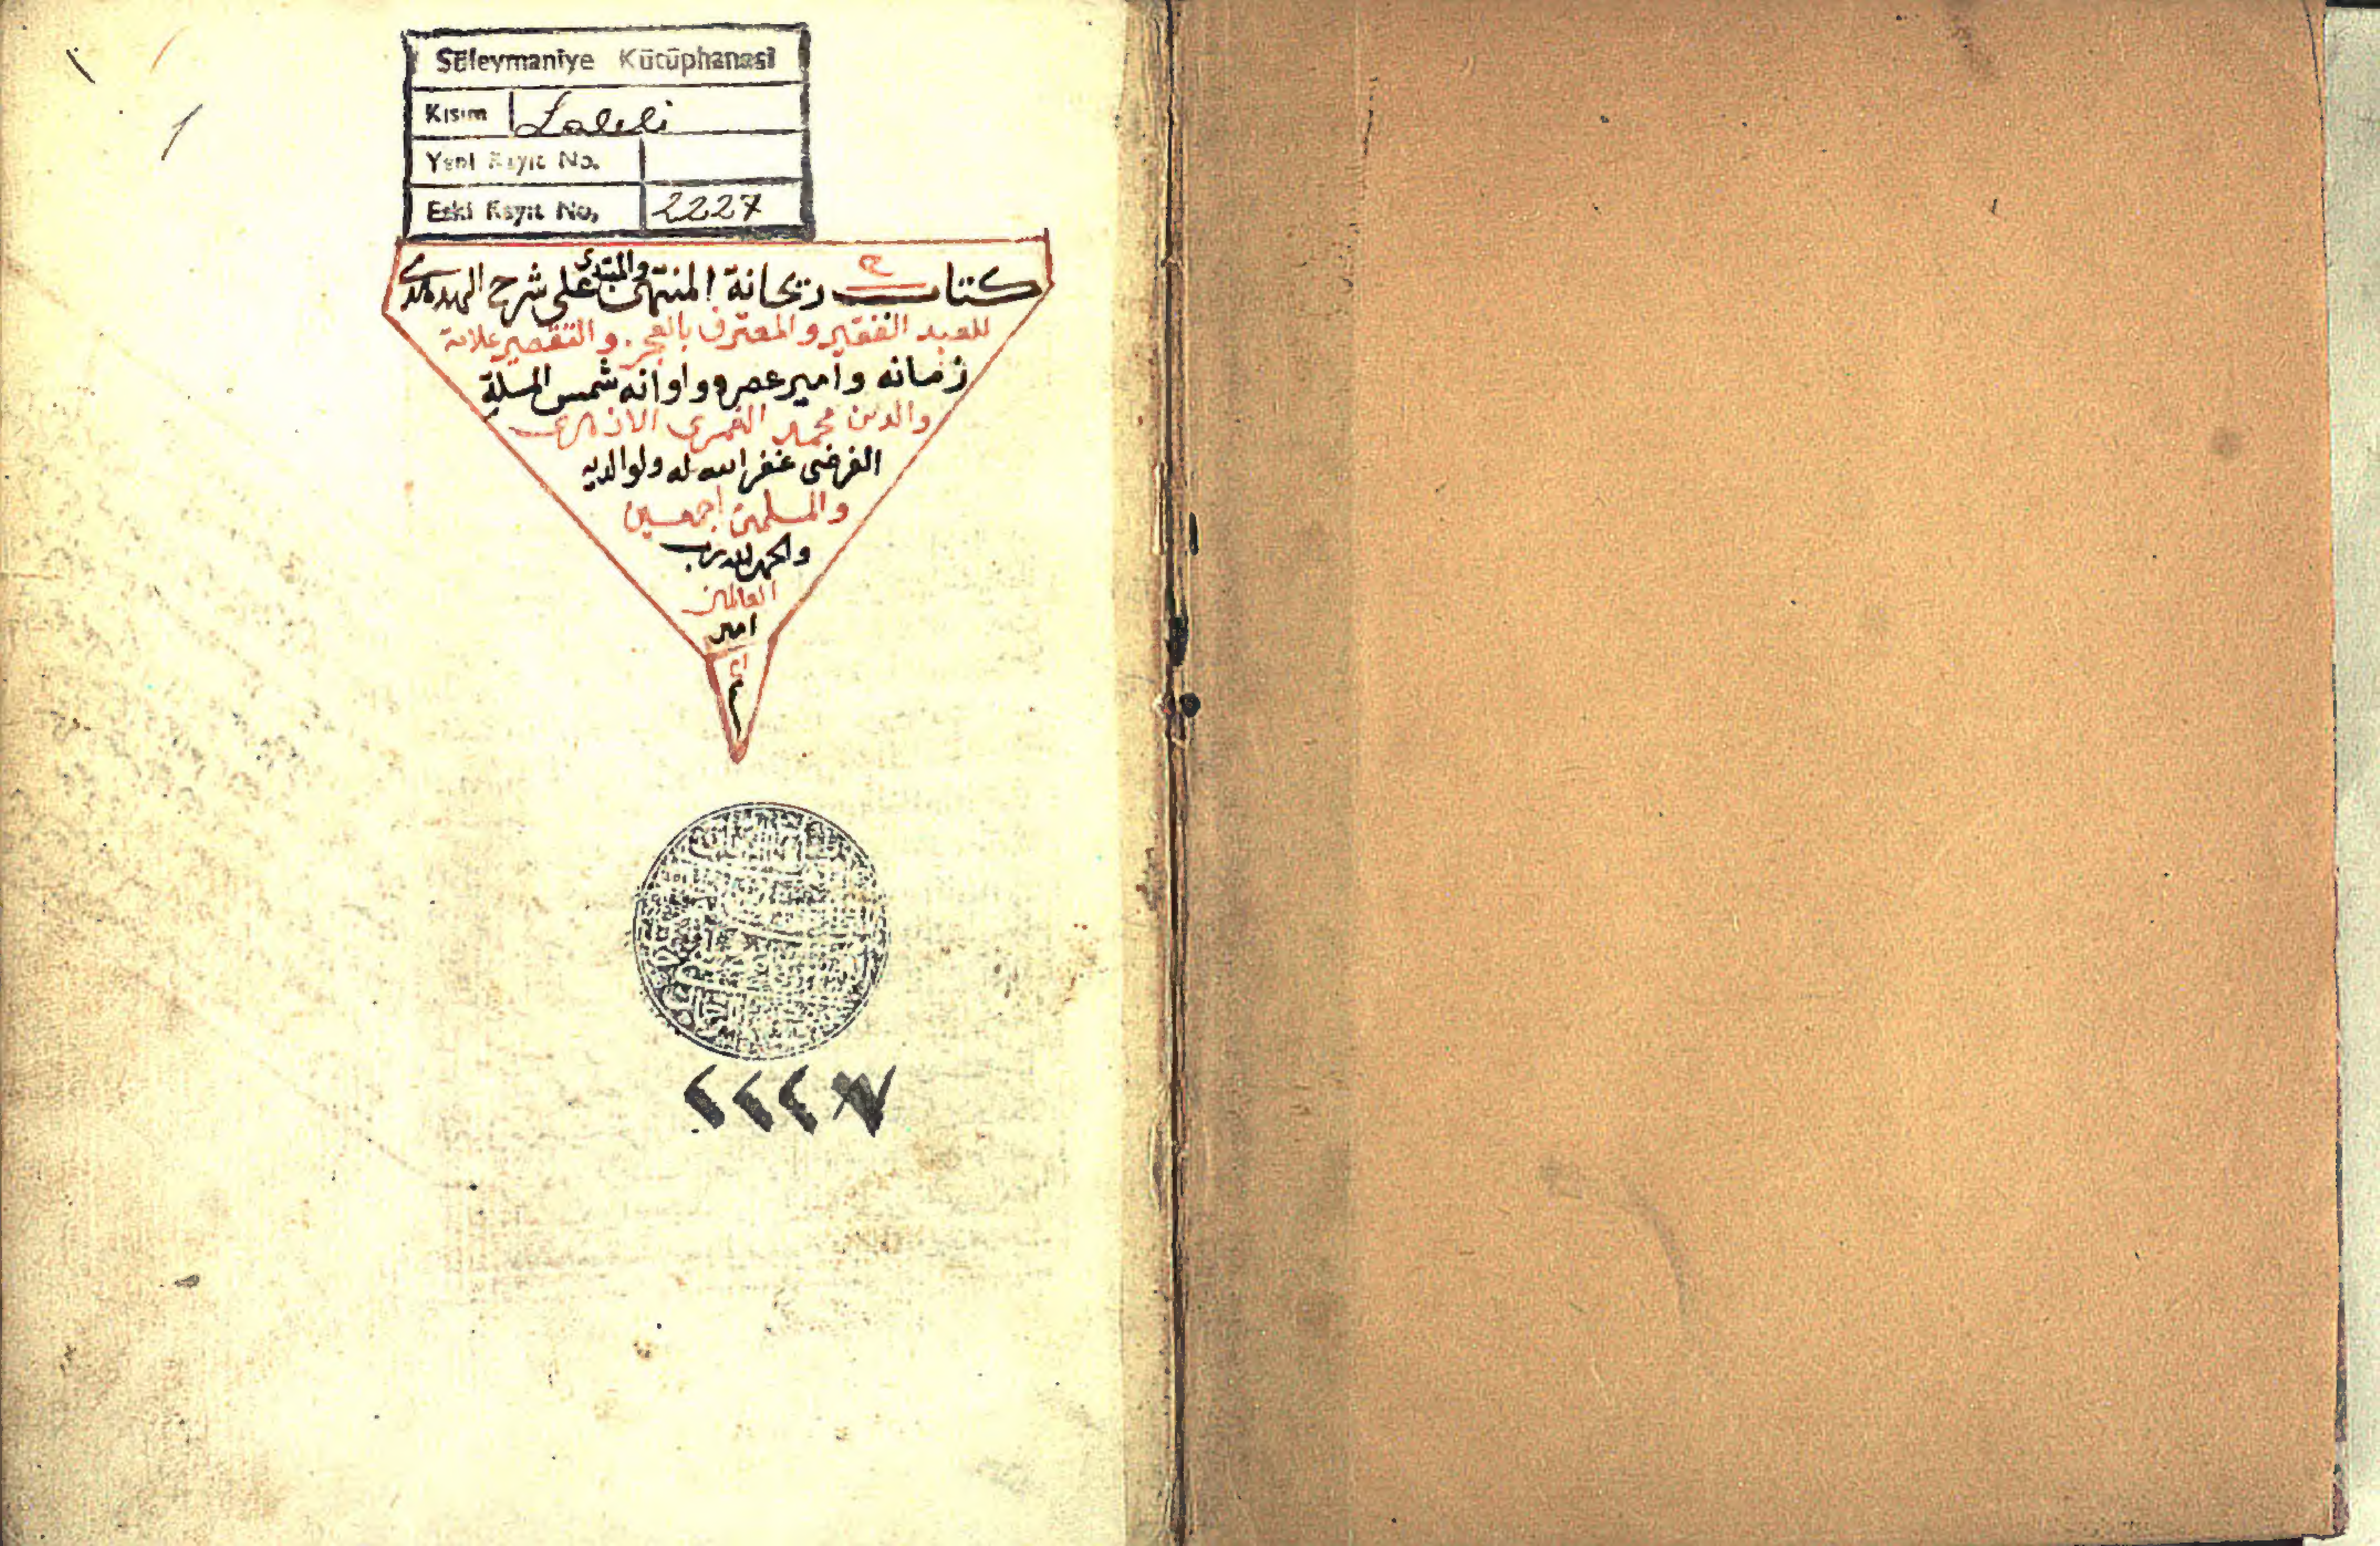 1
Süleymaniye Kütüphanesi
Kısım Laleli
Yeni Kayıt No.
Eski Kayıt No. 2227
كتاب ريحانة المنتهى والمبتدى على شرح الهدهدى
للعبد الفقير والمعترف بالعجز والتقصير علامة
زمانه وامير عصره واوانه شمس الملة
والدين محمد الغمرى الازهرى
الفرضى غفر الله له ولوالديه
والمسلمين اجمعين
والحمد لله رب
العالمين
امين
م
٢٢٢٧